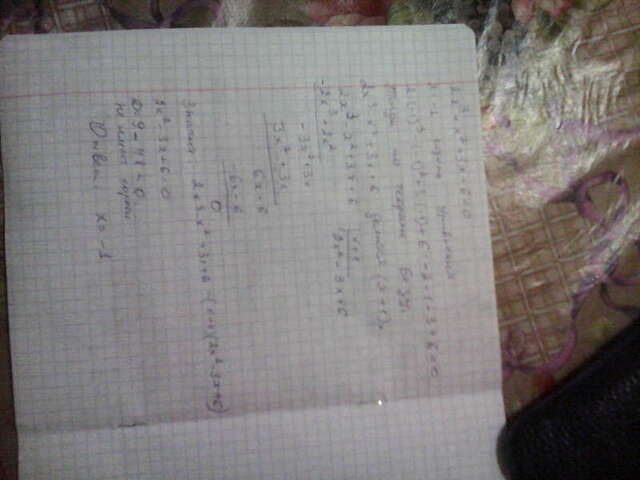 2x³-x²+3x+6=0
x=-1 корень уравнения
2(-1)³-(-1)²+3(-1)+6=-2-1-3+6=0
тогда по теореме Безу
2x³-x²+3x+6 делится (x+1)
2x³-x²+3x+6 | x+1
-2x³+2x² 2x²-3x+6
-3x²+3x
3x²-3x
6x+6
6x+6
0
Значит 2x³-x²+3x+6=(x+1)(2x²-3x+6)
2x²-3x+6=0
D=9-48<0
не имеет корней
Ответ: x=-1